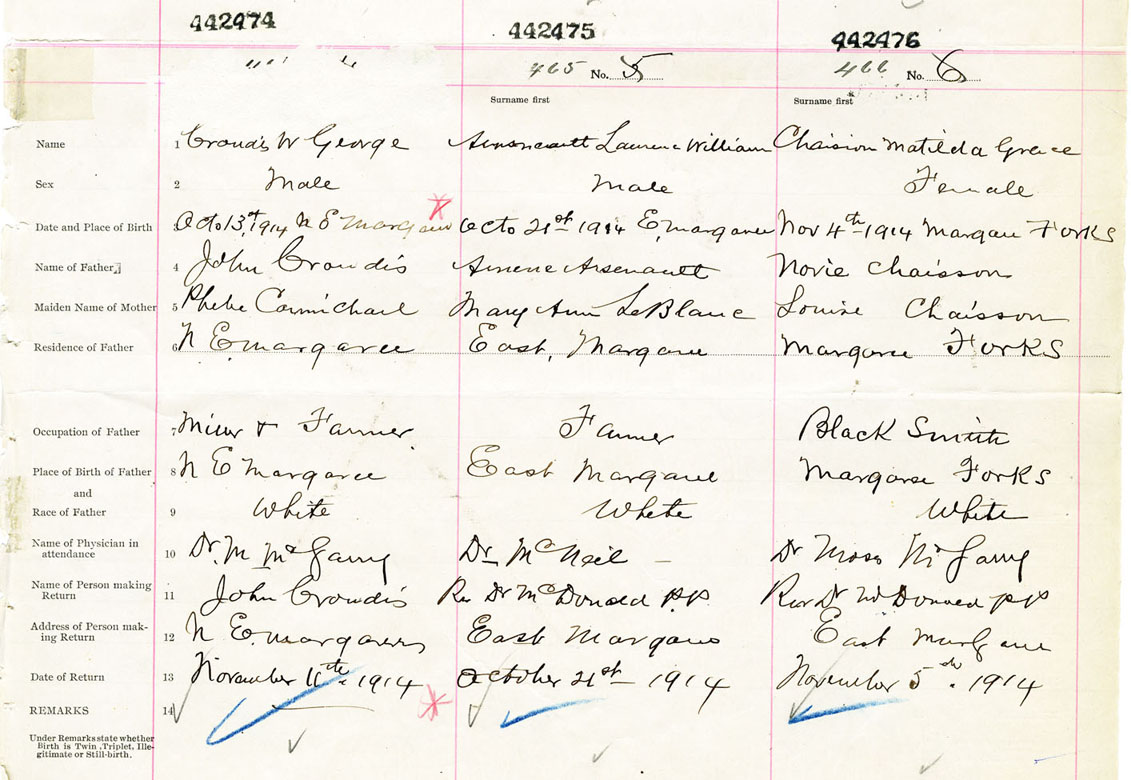 442474 442475 442476
465 No. 5 466 No. 6
Surname first Surname first
Name 1 Croudis W George Arseneault Laurence William Chaision Matilda Grace
Sex 2 Male Male Female
Date and Place of Birth 3 Octo 13st 1914 N E Margaree Octo 21st 1914 E, Margaree Nov 4th 1914 Margaree Forks
Name of Father 4 John Croudis Arsenault Novie Chaisson
Maiden Name of Mother 5 Phebe Carmichael Mary Ann LeBlanc Louise Chaisson
Residence of Father 6 N E Margaree East, Margaree Margaree Forks
Occupation of Father 7 Miner & Farmer Farmer Black Smith
Place of Birth of Father 8 N E Margaree East Margaree Margaree Forks
and
Race of Father 9 White White White
Name of Physician in
attendance 10 Dr. M McGarry Dr McNeil Dr Moses McGarry
Name of Person making
Return 11 John Croudis Rev Dr McDonald P.P. Rev Dr McDonald PP
Address of Person mak-
ing Return 12 N E Margaree East Margaree East Margaree
Date of Return 13 November 11th. 1914 October 21st 1914 November 5th. 1914
REMARKS 14
Under Remarks state whether
Birth is Twin, Triplet, Ille-
gitimate or Still-birth.